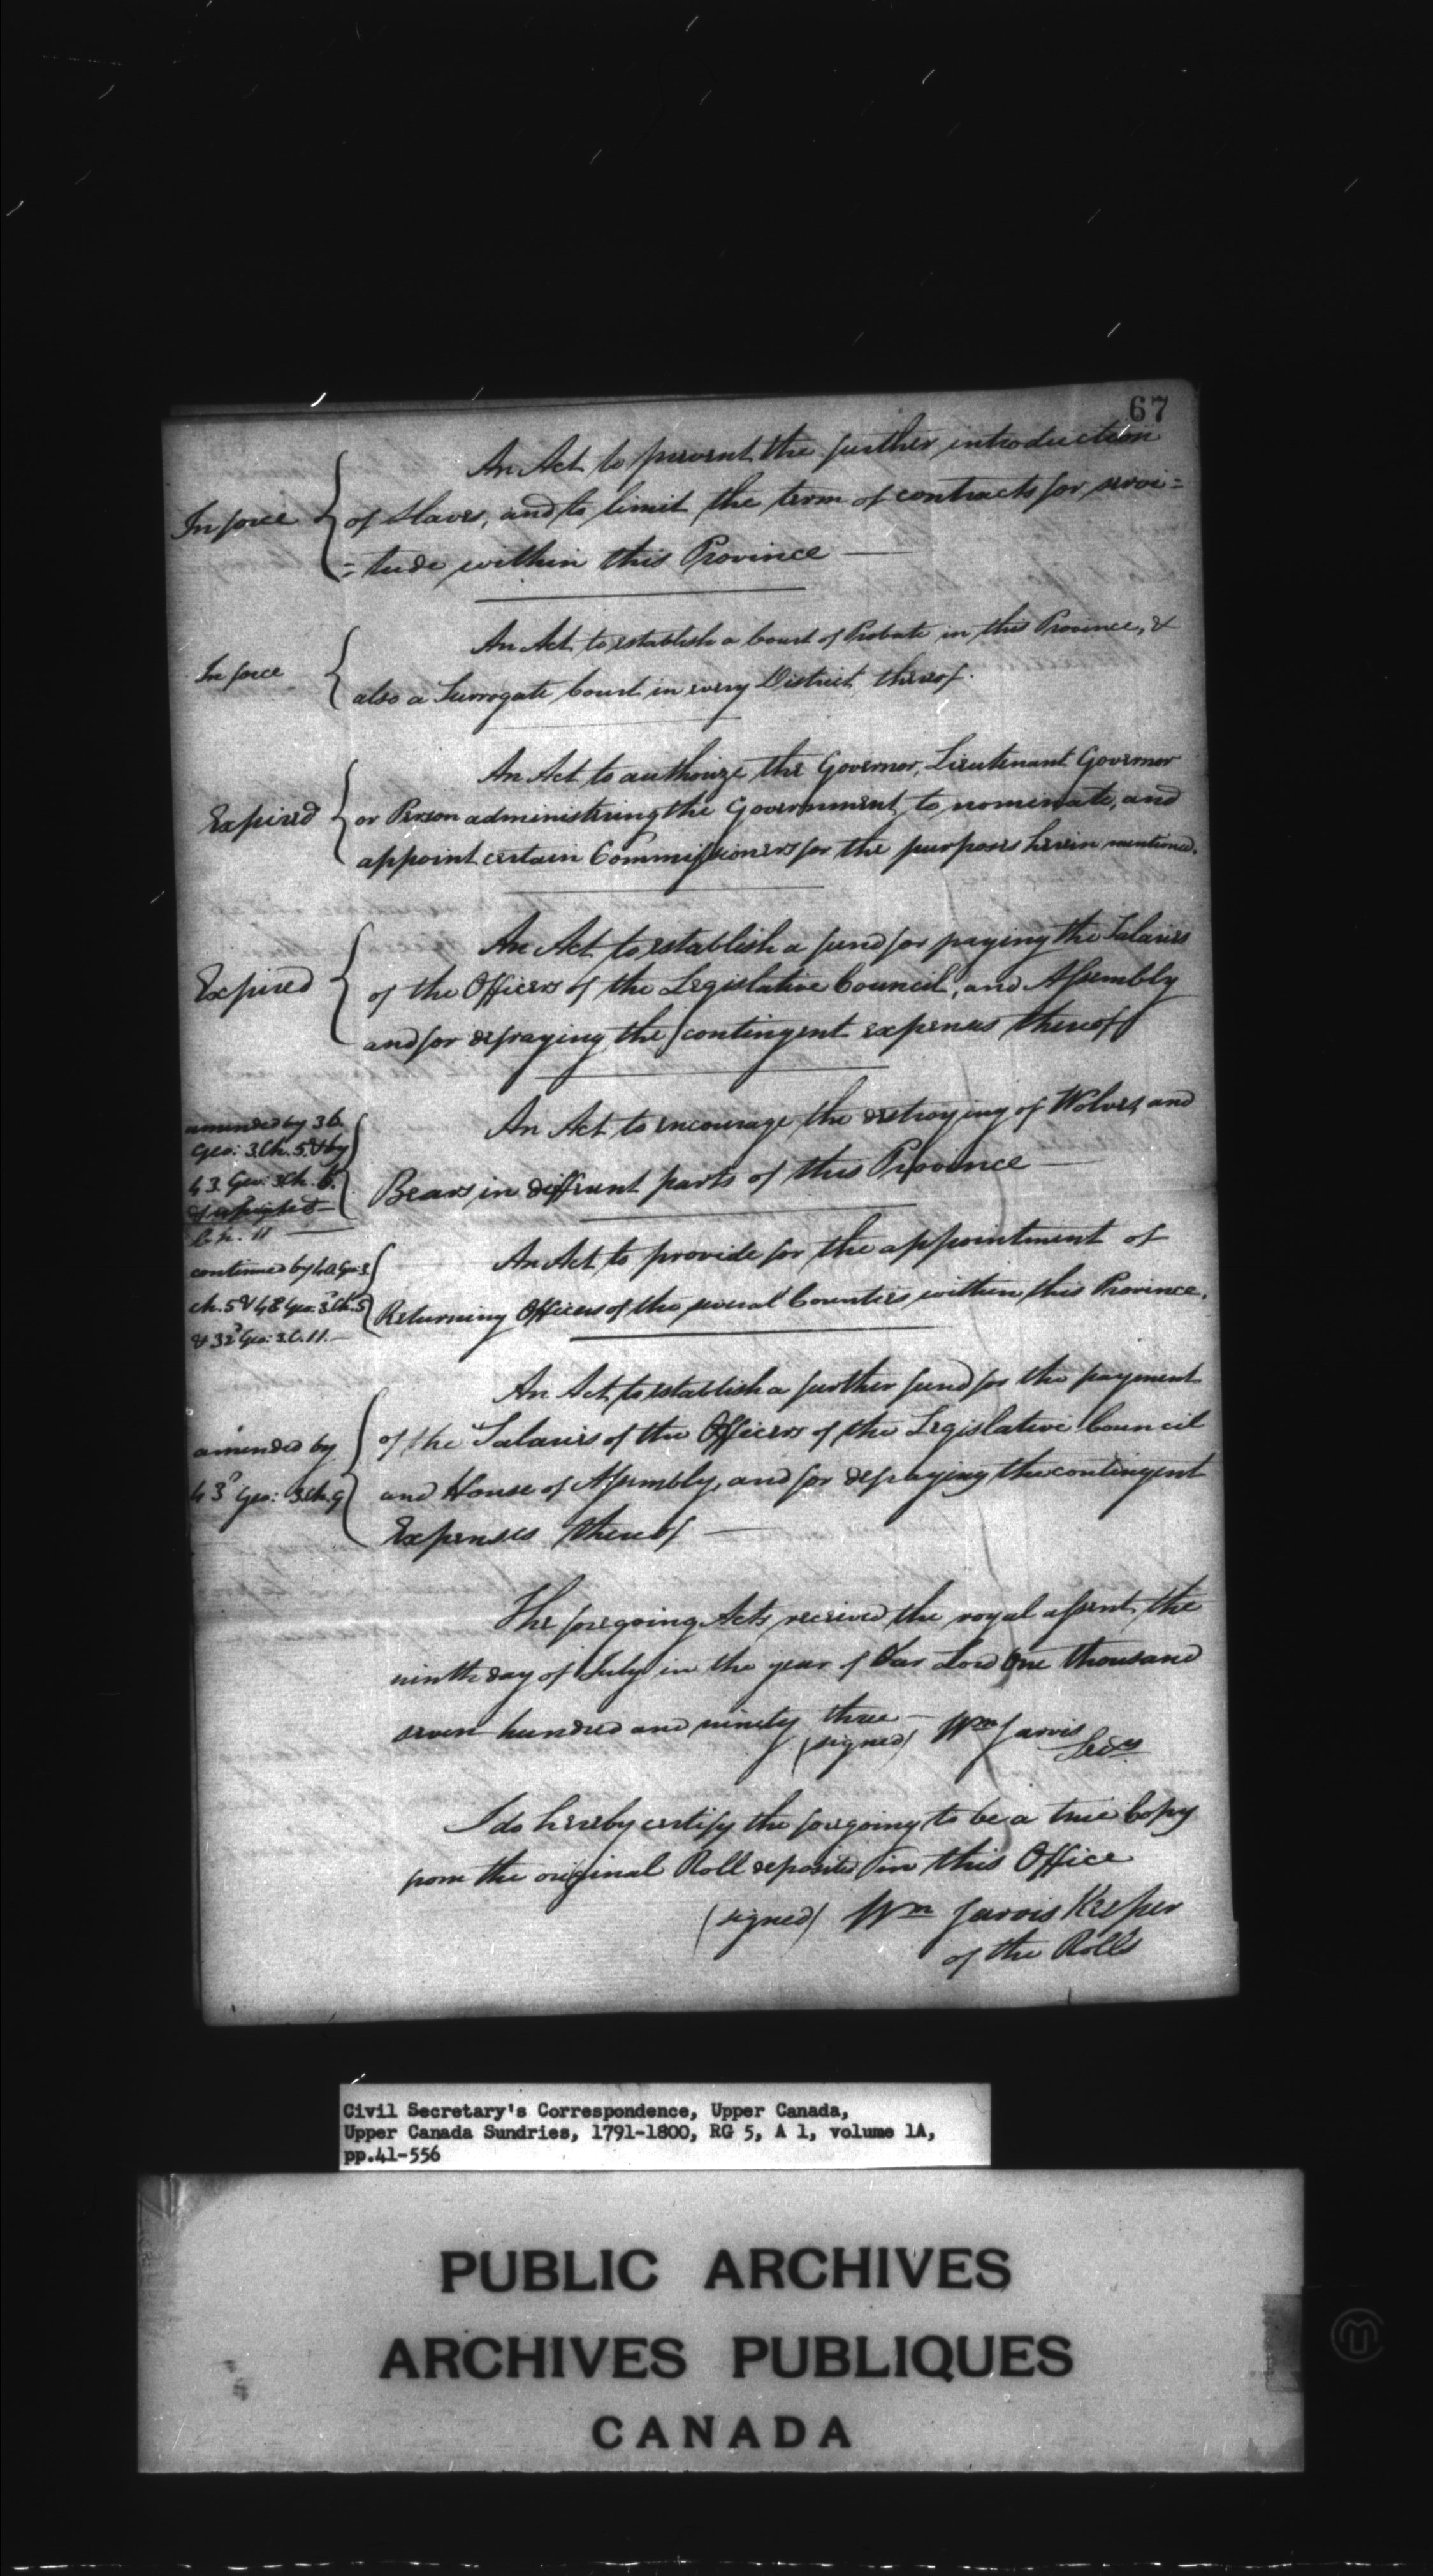 67
An Act to prevent the further introduction
In force of Slaves, and to limit the term of contracts for servi=
=tude within this Province —
An Act to establish a Court of Probate in this Province, &
In force also a Surrogate Court in every District thereof.
An Act to authorize the Governor, Lieutenant Governor
Expired or Person administering the Government, to nominate, and
appoint certain Commissioners for the purposes herein mentioned.
An Act to establish a fund for paying the Salaries
Expired of the Officers of the Legislative Council, and Assembly
and for defraying the contingent expenses thereof
amended by 36.
Geo: 3. Ch. 5. & by
43. Geo: 3 Ch.
Ch. 11 —
An Act to encourage the destroying of Wolves, and
Bears in different parts of this Province —
continued by 40. Geo. 3.
ch. 5 & 48 Geo. 3. Ch. 5
& 32 Geo: 3. C. 11. —
An Act to provide for the appointment of
Returning Officers of the several Counties within this Province.
amended by
43 Geo: 3. Ch. 9
An Act to establish a further fund for the payment
of the Salaries of the Officers of the Legislative Council
and House of Assembly, and for defraying the contingent
Expenses thereof —
The foregoing Acts received the royal assent, the
ninth day of July in the year of Our Lord One thousand
seven hundred and ninety three —
(signed) Wm Jarvis
Secy
I do hereby certify the foregoing to be a true Copy
from the original Roll deposited in this Office
(signed) Wm Jarvis Keeper
of the Rolls
Civil Secretary's Correspondence, Upper Canada,
Upper Canada Sundries, 1791-1800, RG 5, A 1, volume 1A,
pp.41-556
PUBLIC ARCHIVES
ARCHIVES PUBLIQUES
CANADA